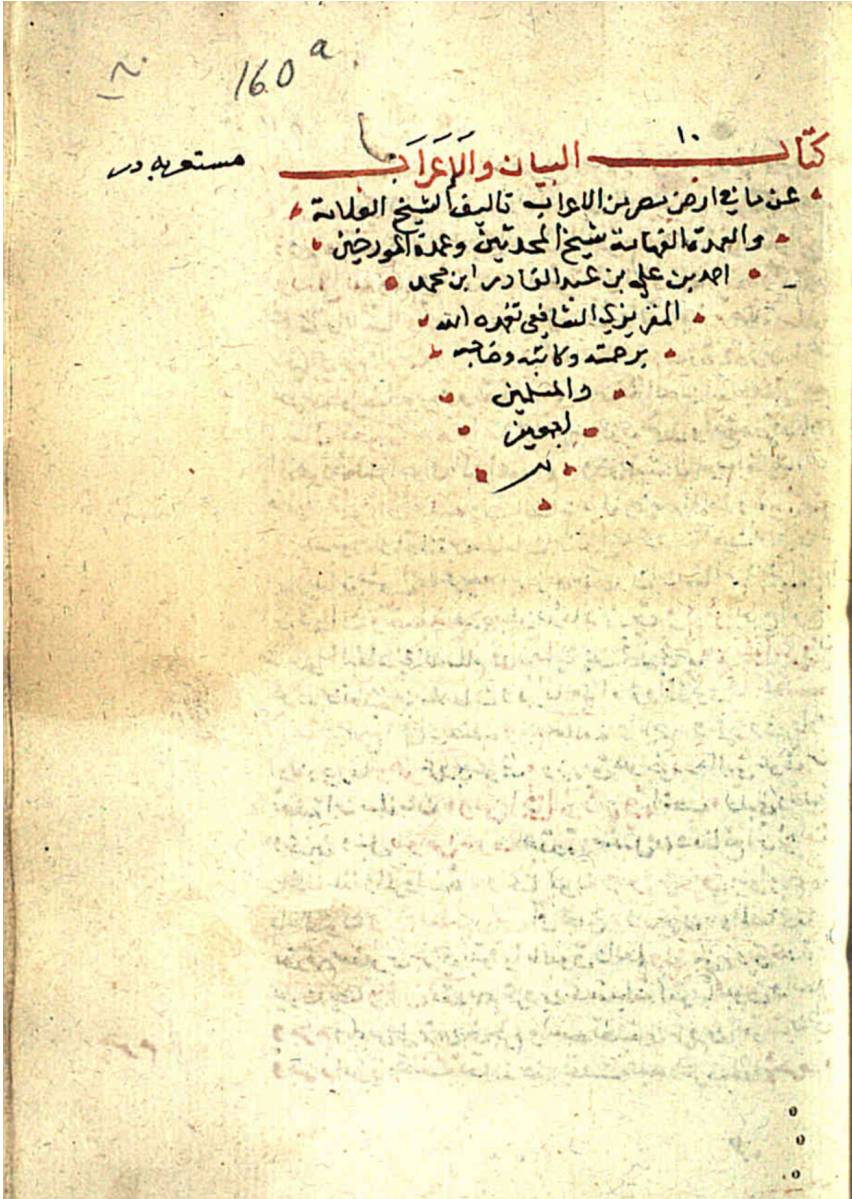 160 a
١٠
كتاب البيان والإعراب
عن ما في ارض مصر من الاعراب تاليف الشيخ العلامة
والعمدة الفهامة شيخ المحدثين وعمدة المورخين
احمد بن علي بن عبد القادر ابن محمد
المقريزي الشافعي تغمده الله
برحمته وكاتبه وصاحبه
والمسلمين
اجمعين